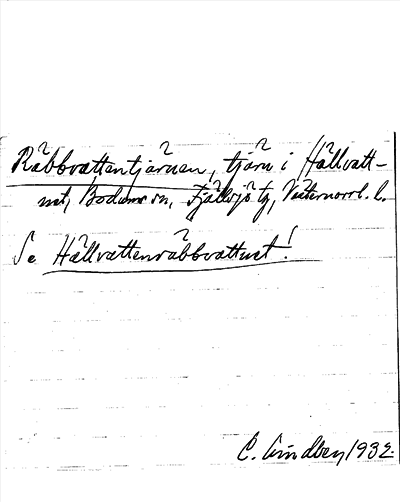 Råbbvattentjärnen, tjärn i Hällvatt-
net, Bodums sn, Fjällsjö tg, Västernorrl. l.
Se Hällvattensråbbvattnet!
C. Lindbey 1932.